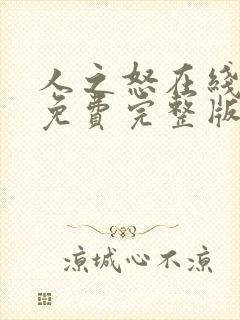 人之怒在线
免費完整版
凉城心不凉